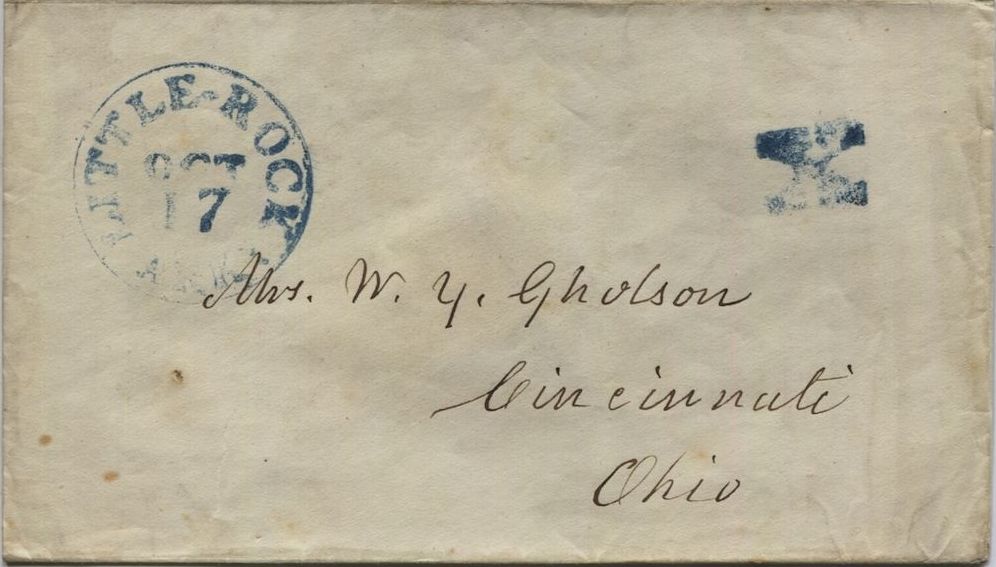 LITTLE-ROCK
OCT
17
X
Mrs. W. Y. Gholson
Cincinnati
Ohio